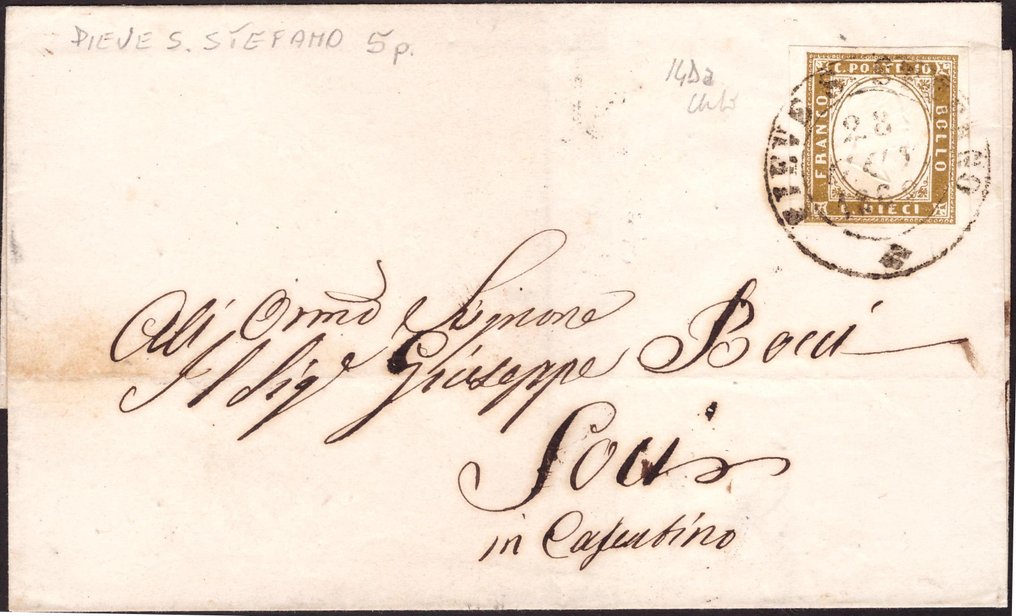 PIEVE S. STEFANO 5 p.
14Da
C. POSTE 10
FRANCO
BOLLO
C. DIECI
PIEVE S. STEFANO
28
All' Ornmo Signore
Il Sigr Giuseppe Bocci
Soci
in Casentino